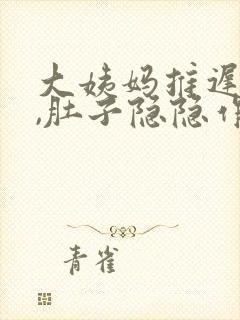 大姨妈推迟
,肚子隐隐作
青雀